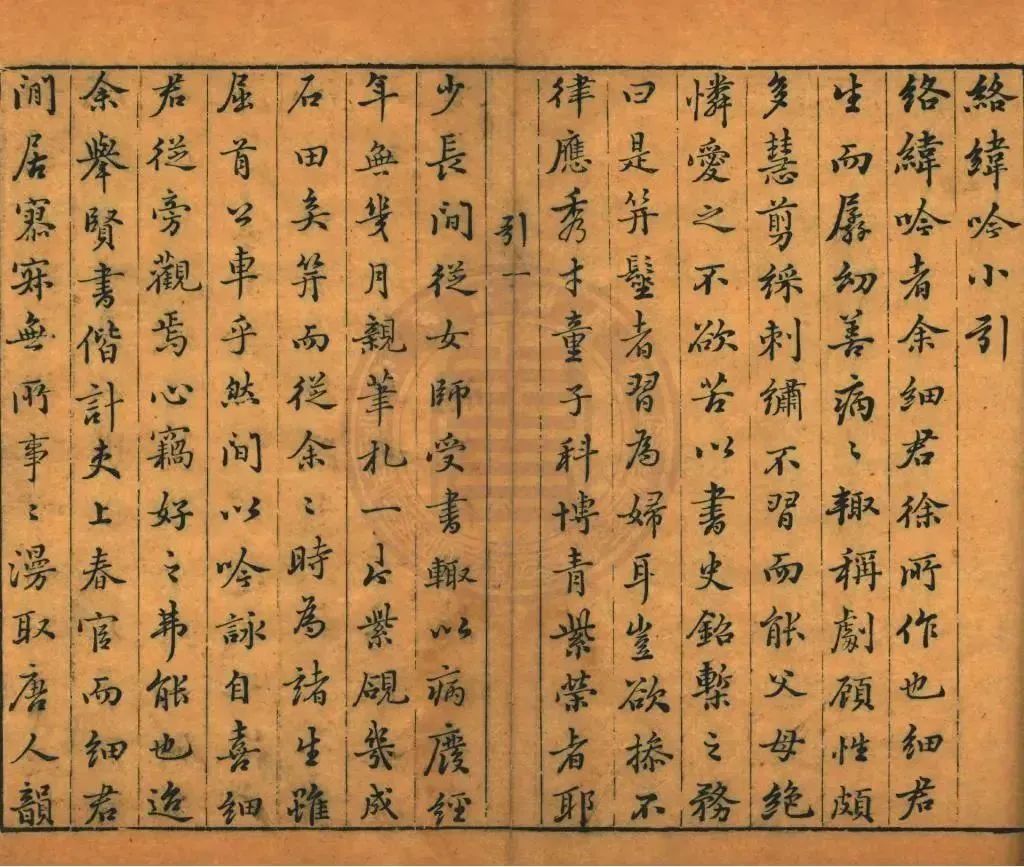 絡緯吟小引
絡緯吟者余細君徐所作也細君
生而孱幼善病〻輙稱劇顧性頗
多慧剪綵刺繡不習而能父母絶
憐愛之不欲苦以書史鉛槧之務
曰是笄髽者習為婦耳豈欲搽不
律應秀才童子科博青紫榮者耶
引一
少長間從女師受書輙以病廢經
年無幾月親筆札一片紫硯幾成
石田矣笄而從余〻時為諸生雖
屈首公車乎然間以吟詠自喜細
君從旁觀焉心竊好之弗能也迨
余舉賢書偕計吏上春官而細君
閒居寡寐無所事〻漫取唐人韻